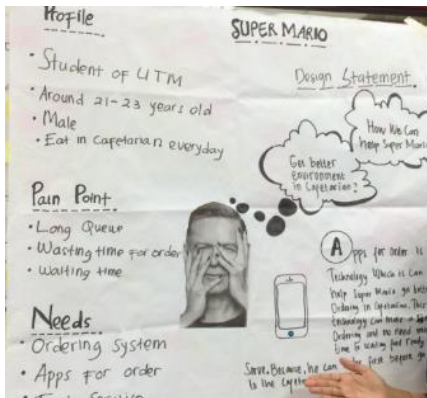 Profile
• Student of UTM
• Around 21-23 years old
• Male
• Eat in Cafetarian everyday
Pain Point
• Long Queue
• Wasting time for order
• Waiting time
Needs
• Ordering system
• Apps for order
SUPER MARIO
Design Statement
How We Can
help Super Mario
Get better
Environment
in Cafetarian?
Apps for order is
Technology Which is Can
help Super Mario go better
Ordering in Cafetarian. This
technology Can make
Ordering and no need
time to waiting food ready
Serve. Because, he can first before go
to the